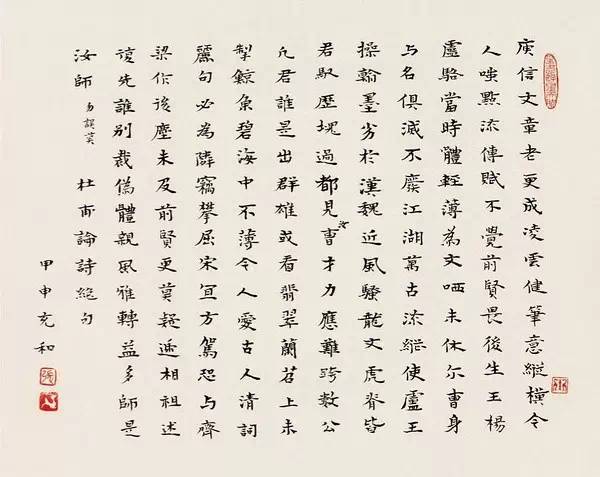 庾信文章老更成凌雲健筆意縱橫今
人嗤點流傳賦不覺前賢畏後生王楊
盧駱當時體輕薄為文哂未休尔曹身
与名俱滅不廢江湖萬古流縱使盧王
操翰墨劣於漢魏近風騷龍文虎脊皆
君馭歷塊過都見曹才力應難跨數公
凡君誰是出群雄或看翡翠蘭苕上未
掣鯨魚碧海中不薄今人愛古人清詞
麗句必為隣竊攀屈宋宜方駕恐与齊
梁作後塵未及前賢更莫疑遞相祖述
復先誰別裁偽體親風雅轉益多師是
汝師 勿誤莫 杜甫論詩絕句
甲申充和